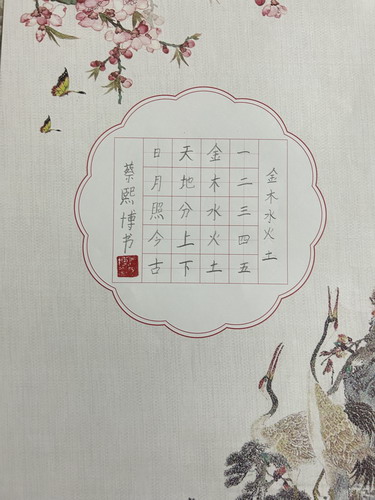 金木水火土
一二三四五
金木水火土
天地分上下
日月照今古
蔡熙博书